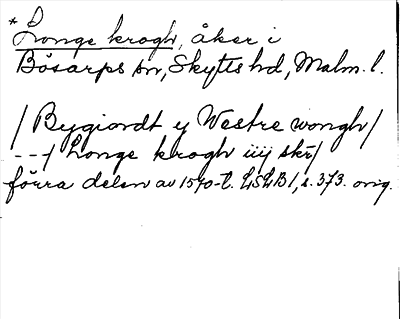 * Longe krogh, åker i
Bösarps sn, Skytts hd, Malm. l.
/ Bygiordt y Westre wongh /
--- / Longe krogh iiij skr /
förra delen av 1570-t. LSLB 1, s. 373. orig.